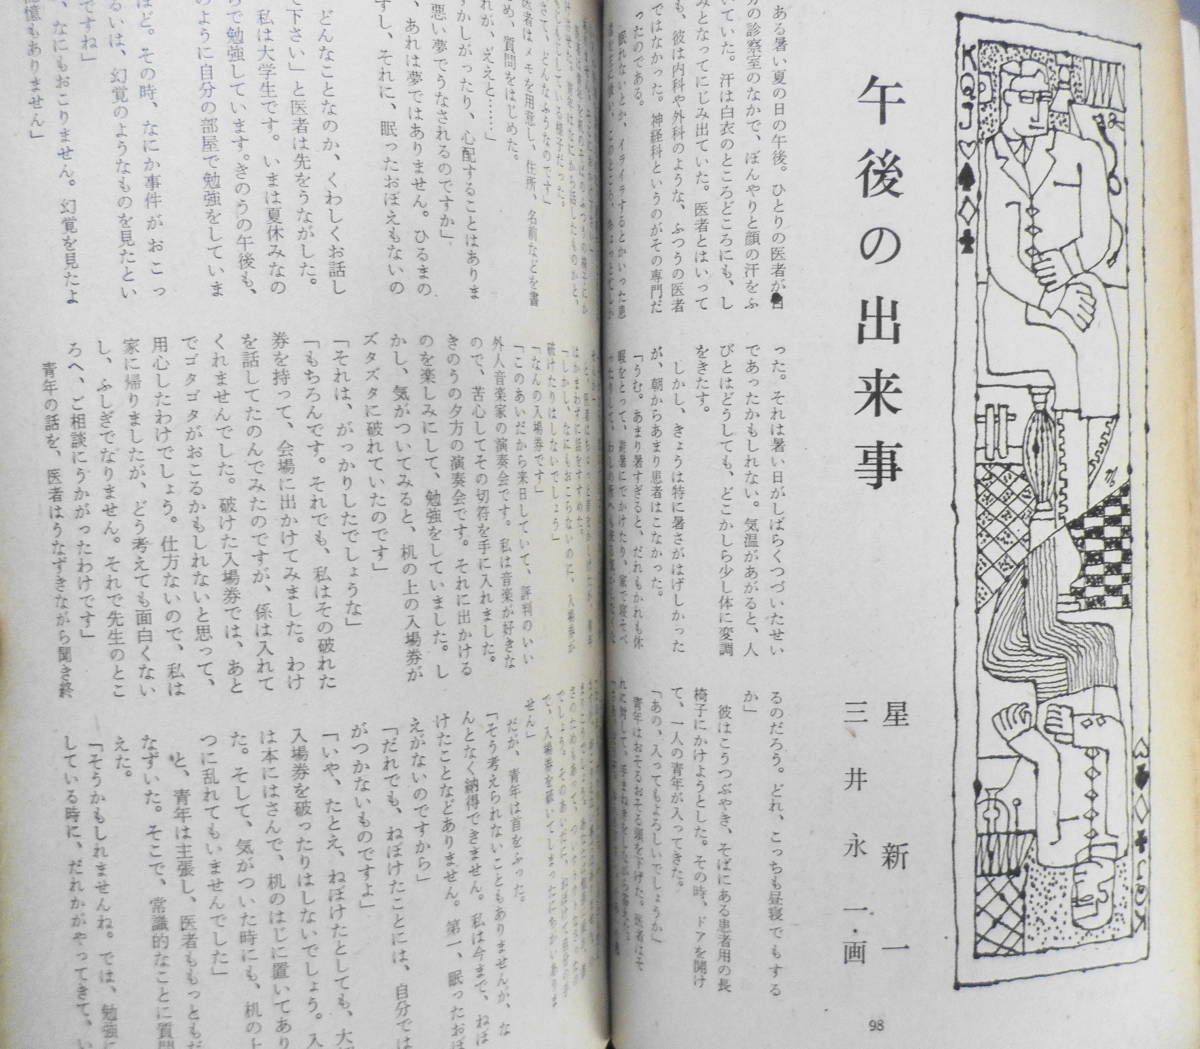 午後の出来事
星新一
三井永一・画
ある暑い夏の日の午後。ひとりの医者が自
分の診察室のなかで、ぼんやりと顔の汗をふ
いていた。汗は白衣のところどころにも、し
みとなってにじみ出ていた。医者とはいって
も、彼は内科や外科のような、ふつうの医者
ではなかった。神経科というのがその専門だ
ったのである。
眠れないとか、イライラするとかいった患
った。それは暑い日がしばらくつづいたせい
であったかもしれない。気温があがると、人
びとはどうしても、どこかしら少し体に変調
をきたす。
しかし、きょうは特に暑さがはげしかった
が、朝からあまり患者はこなかった。
「うむ。あまり暑すぎると、だれもかれも休
暇をとって、避暑にでかけたり、家で寝そべ
るのだろう。どれ、こっちも昼寝でもする
か」
彼はこうつぶやき、そばにある患者用の長
椅子にかけようとした。その時、ドアを開け
て、一人の青年が入ってきた。
「あの、入ってもよろしいでしょうか」
青年はおそるおそる頭を下げた。医者はそ
98
「さて、どんなふうなのです」
医者はメモを用意し、住所、名前などを書
め、質問をはじめた。
れが、ええと……」
すかしがったり、心配することはありま
悪い夢でうなされるのですか」
、あれは夢ではありません。ひるまの
すし、それに、眠ったおぼえもないの
どんなことなのか、くわしくお話し
て下さい」と医者は先をうながした。
私は大学生です。いまは夏休みなの
らで勉強しています。きのうの午後も、
のように自分の部屋で勉強をしていま
ほど。その時、なにか事件がおこっ
るいは、幻覚のようなものを見たとい
ですね」
、なにもおこりません。幻覚を見たよ
憶もありません」
「しかし、なにもおこらないのに、入場券が
破けたりはしないでしょう」
「なんの入場券です」
「このあいだから来日していて、評判のいい
外人音楽家の演奏会です。私は音楽が好きな
ので、苦心してその切符を手に入れました。
きのうの夕方の演奏会です。それに出かける
のを楽しみにして、勉強をしていました。し
かし、気がついてみると、机の上の入場券が
ズタズタに破れていたのです」
「それは、がっかりしたでしょうな」
「もちろんです。それでも、私はその破れた
券を持って、会場に出かけてみました。わけ
を話してたのんでみたのですが、係は入れて
くれませんでした。破けた入場券では、あと
でゴタゴタがおこるかもしれないと思って、
用心したわけでしょう。仕方ないので、私は
家に帰りましたが、どう考えても面白くない
し、ふしぎでなりません。それで先生のとこ
ろへ、ご相談にうかがったわけです」
青年の話を、医者はうなずきながら聞き終
せん」
だが、青年は首をふった。
「そう考えられないこともありませんが、な
んとなく納得できません。私は今まで、ねぼ
けたことなどありません。第一、眠ったおぼ
えがないのですから」
「だれでも、ねぼけたことには、自分では
がつかないものですよ」
「いや、たとえ、ねぼけたとしても、大
入場券を破ったりはしないでしょう。入
は本にはさんで、机のはじに置いてあり
た。そして、気がついた時にも、机の上
つに乱れてもいませんでした」
と、青年は主張し、医者ももっともだ
なずいた。そこで、常識的なことに質問
えた。
「そうかもしれませんね。では、勉強に
している時に、だれかがやってきて、い